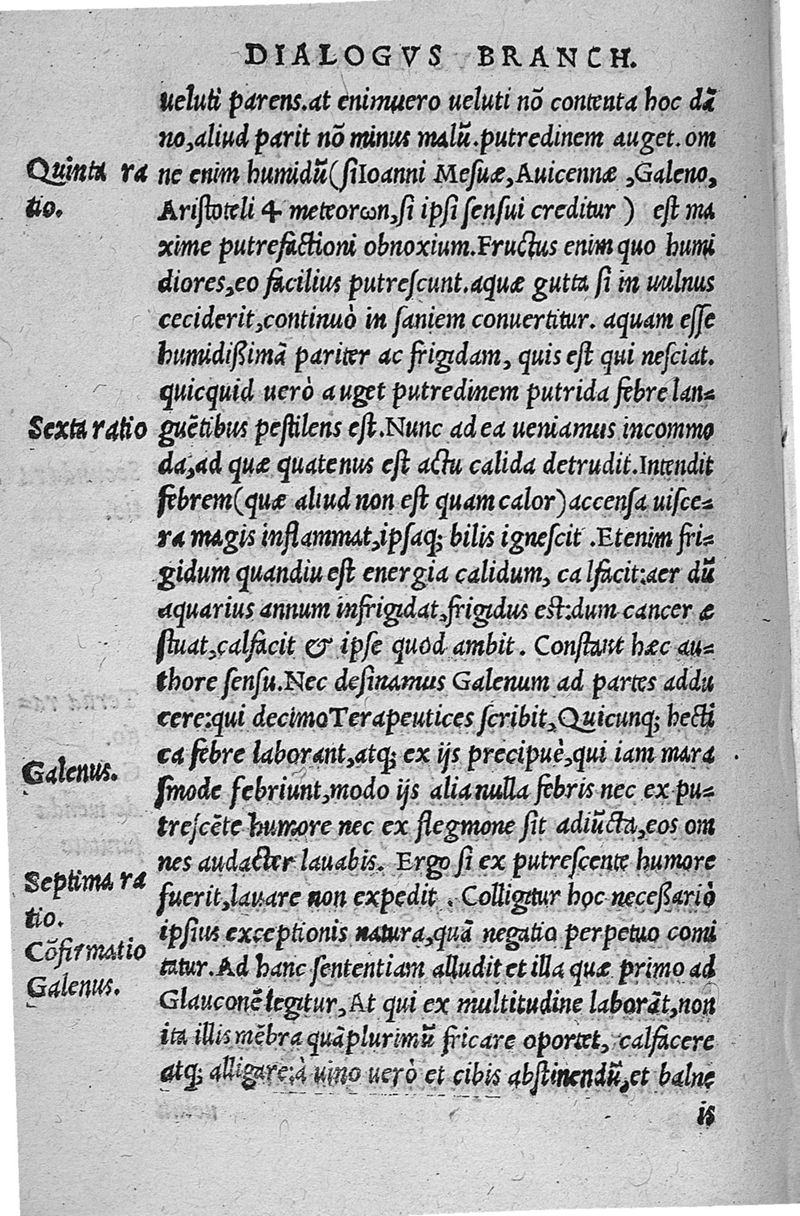 DIALOGVS BRANCH.
ueluti parens.at enimuero ueluti nõ contenta hoc dã
no,aliud parit nõ minus malũ.putredinem auget.om
Quinta ra
tio.
ne enim humidũ(siIoanni Mesuæ,Auicennæ ,Galeno,
Aristoteli 4 meteorωn,si ipsi sensui creditur ) est ma
xime putrefactioni obnoxium.Fructus enim quo humi
diores,eo facilius putrescunt.aquæ gutta si in uulnus
ceciderit,continuò in saniem conuertitur. aquam esse
humidißimã pariter ac frigidam, quis est qui nesciat.
quicquid uerò auget putredinem putrida febre lan=
Sexta ratio
guẽtibus pestilens est.Nunc ad ea ueniamus incommo
da,ad quæ quatenus est actu calida detrudit.Intendit
febrem(quæ aliud non est quam calor)accensa uisce=
ra magis inflammat,ipsaq; bilis ignescit .Etenim fri=
gidum quandiu est energia calidum, calfacit:aer dũ
aquarius annum infrigidat,frigidus est:dum cancer æ
stuat,calfacit & ipse quod ambit. Constant hæc au=
thore sensu.Nec desinamus Galenum ad partes addu
cere:qui decimoTerapeutices scribit,Quicunq; hecti
Galenus.
ca febre laborant,atq; ex ijs precipuè,qui iam mara
smode febriunt,modo ijs alia nulla febris nec ex pu=
trescẽte humore nec ex flegmone sit adiũcta,eos om
nes audacter lauabis. Ergo si ex putrescente humore
Septima ra
tio.
fuerit,lauare non expedit . Colligitur hoc neceßariò
ipsius exceptionis natura,quã negatio perpetuo comi
Cõfirmatio
Galenus.
tatur.Ad hanc sententiam alludit et illa quæ primo ad
Glauconẽ legitur,At qui ex multitudine laborãt,non
ita illis mẽbra quãplurimũ fricare oportet, calfacere
atq; alligare:à uino uerò et cibis abstinendũ,et balnę
is